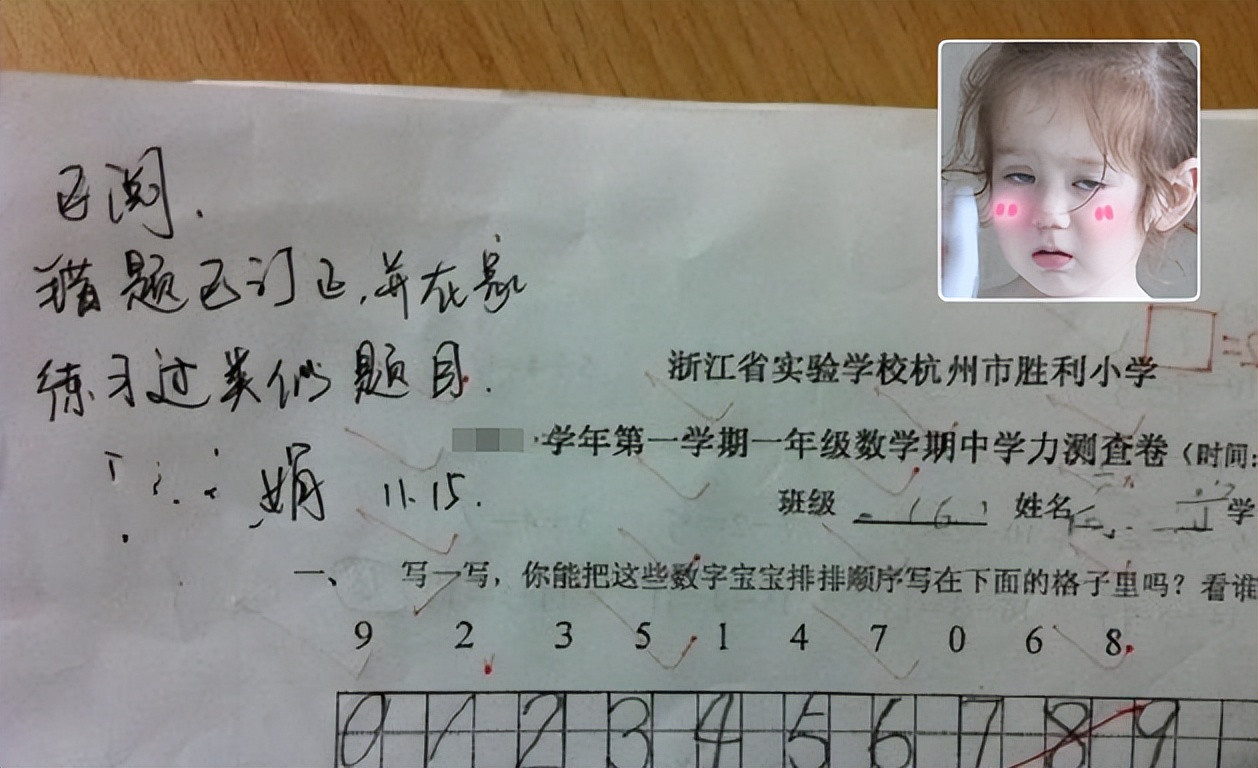 已阅.
错题已订正,并在家
练习过类似题目.
娟 11.15.
浙江省实验学校杭州市胜利小学
学年第一学期一年级数学期中学力测查卷（时间:
班级 (6) 姓名 学
一、 写一写，你能把这些数字宝宝排排顺序写在下面的格子里吗？看谁
9 2 3 5 1 4 7 0 6 8
0 1 2 3 4 5 6 7 8 9